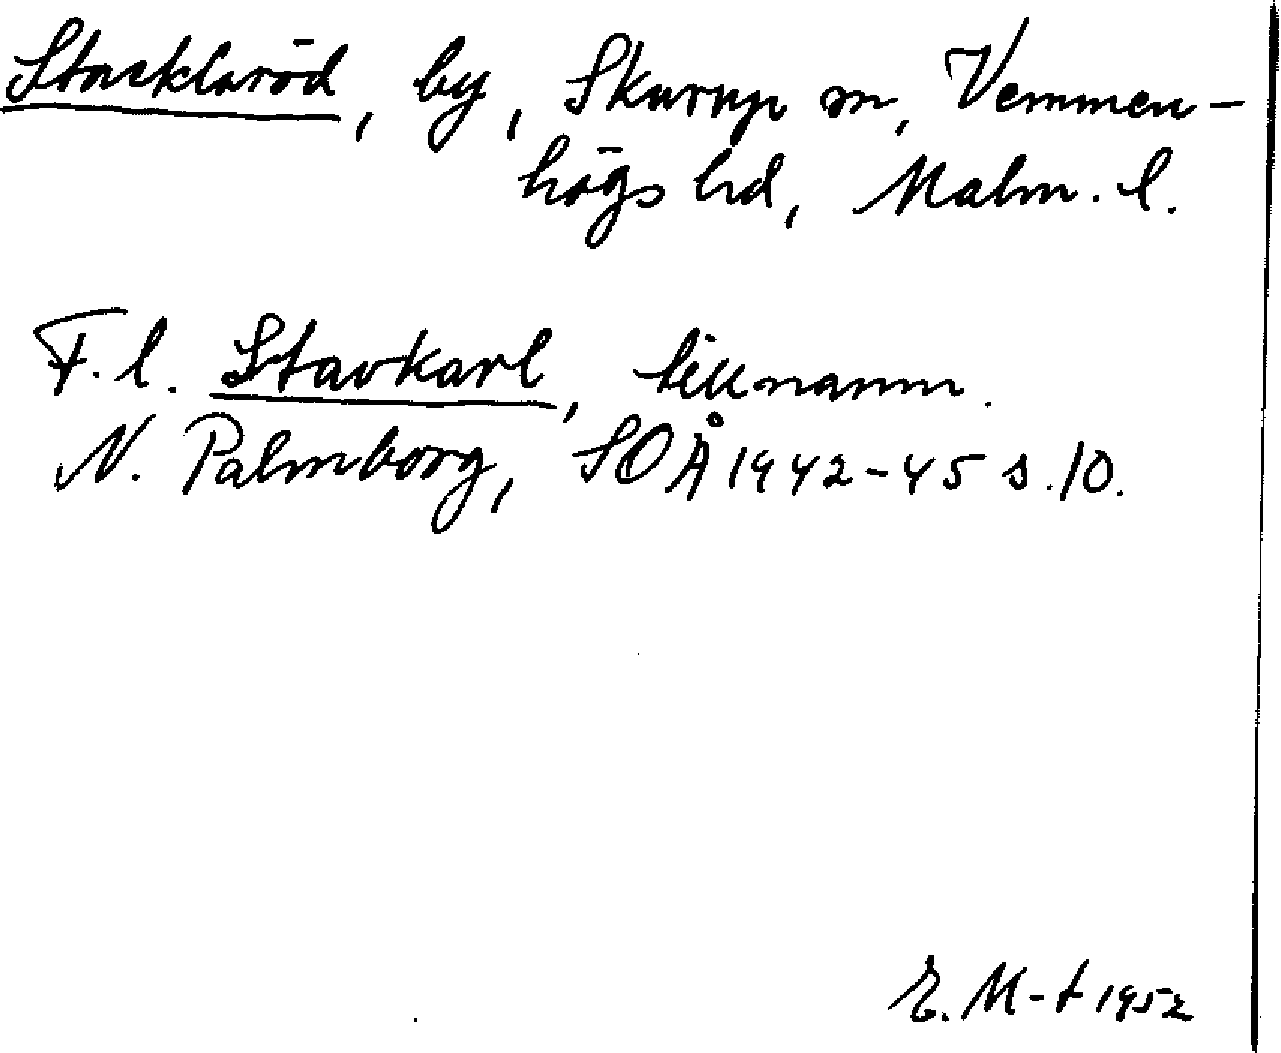 Stacklaröd, by, Skurup sn, Vemmen-
högs hd, Malm. l.
F. l. Stavkarl, tillnamn.
N. Palmborg, SOÅ 1942-45 s. 10.
E. M-t 1952